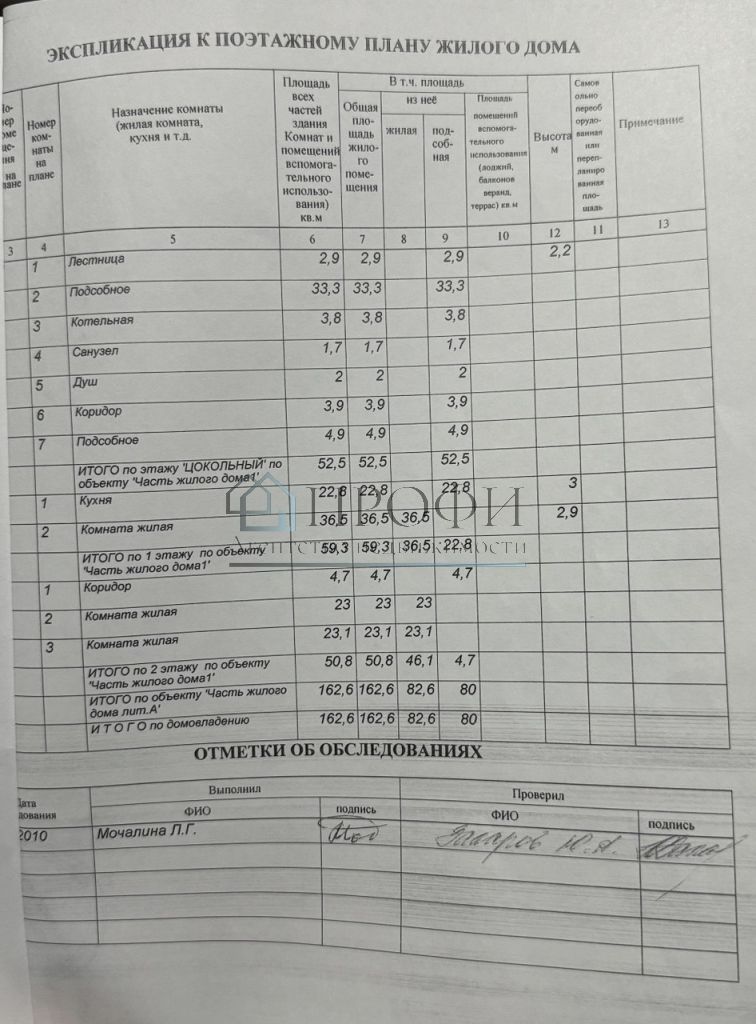 ЭКСПЛИКАЦИЯ К ПОЭТАЖНОМУ ПЛАНУ ЖИЛОГО ДОМА
Номер ком- наты на плане
Назначение комнаты (жилая комната, кухня и т.д.
Площадь всех частей здания Комнат и помещений вспомога- тельного использо- вания) кв.м
В т.ч. площадь
Общая пло- щадь жило- го поме- щения
из неё
жилая
под- соб- ная
Площадь помещений вспомога- тельного использования (лоджий, балконов веранд, террас) кв.м
Высота м
Самов ольно переоб орудо- ванная или переп- ланиро ванная пло- щадь
Примечание
3 4 5 6 7 8 9 10 12 11 13
1 Лестница 2,9 2,9 2,9 2,2
2 Подсобное 33,3 33,3 33,3
3 Котельная 3,8 3,8 3,8
4 Санузел 1,7 1,7 1,7
5 Душ 2 2 2
6 Коридор 3,9 3,9 3,9
7 Подсобное 4,9 4,9 4,9
ИТОГО по этажу 'ЦОКОЛЬНЫЙ' по объекту 'Часть жилого дома1' 52,5 52,5 52,5
1 Кухня 22,8 22,8 22,8 3
2 Комната жилая 36,5 36,5 36,5 2,9
ИТОГО по 1 этажу по объекту 'Часть жилого дома1' 59,3 59,3 36,5 22,8
1 Коридор 4,7 4,7 4,7
2 Комната жилая 23 23 23
3 Комната жилая 23,1 23,1 23,1
ИТОГО по 2 этажу по объекту 'Часть жилого дома1' 50,8 50,8 46,1 4,7
ИТОГО по объекту 'Часть жилого дома лит.А' 162,6 162,6 82,6 80
И Т О Г О по домовладению 162,6 162,6 82,6 80
ПРОФИ
Агентство недвижимости
ОТМЕТКИ ОБ ОБСЛЕДОВАНИЯХ
Дата
Выполнил
Проверил
ФИО
подпись
ФИО
подпись
2010 Мочалина Л.Г. Захаров Ю.А.